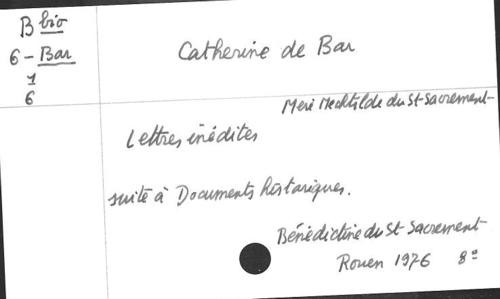 B bio
6 - Bar
1
6
Catherine de Bar
Mère Mechtilde du St-Sacrement-
Lettres inédites
suite à Documents historiques.
Bénédictine du St-Sacrement
Rouen 1976 8°